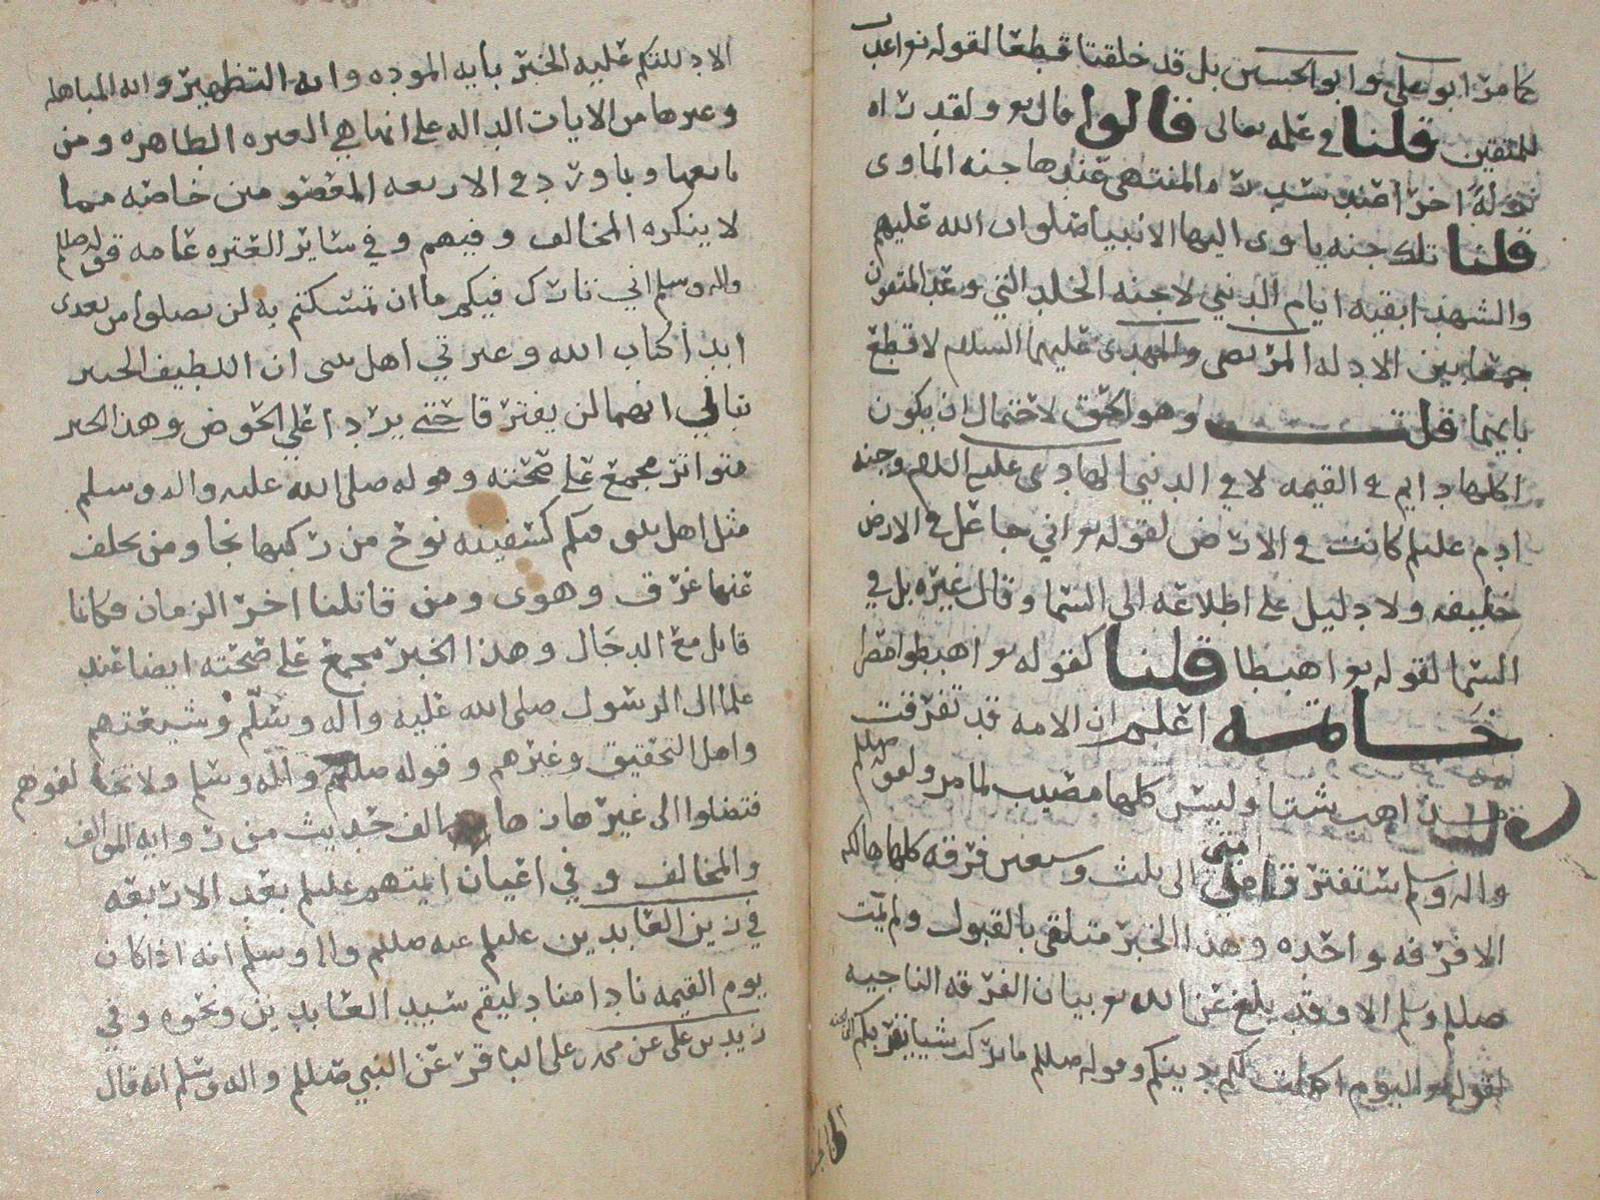 كما مر ابو علي وابو الحسين بل قد خلقتا قطعا لقوله تع اعدت
للمتقين قلنا في علمه تعالى قالوا قال تع ولقد راه
نزلة اخرا عند سدره المنتهى عندها جنه الماوى
قلنا تلك جنه ياوى اليها الانبيا صلوات الله عليهم
والشهدا بقيه ايام الدنيى لا جنه الخلد التي وعد المتقون
جمعا بين الادله المرتضى والمهدى عليهما السلام لا قطع
بايهما قلت وهو الحق لاحتمال ان يكون
اكلها دايم في القيمه لا في الدنيى الهادى عليه السلام وجنه
ادم عليلم كانت في الارض لقوله تع اني جاعل في الارض
خليفه ولا دليل على اطلاعه الى السما وقال غيره بل في
السما لقوله تع اهبطا قلنا كقوله تع اهبطوا مصرا
خاتمه اعلم ان الامه قد تفرقت
مذاهب شتا وليس كلها مصيب لما مر ولقوله صللم
واله وسلم ستفترق امتى الى ثلث وسبعين فرقه كلها هالكه
الا فرقه واحده وهذا الخبر متلقى بالقبول ولم يمت
صللم وسلم الا وقد بلغ عن الله تع بيان الفرقه الناجيه
لقوله تع اليوم اكملت لكم دينكم وقوله صللم ما تركت شيا يقربكم الى الجنه
الا دللتكم عليه الخبر بايه الموده وايه التطهير وايه المباهله
وغيرها من الايات الداله على انها هي العتره الطاهره ومن
تابعها وبما ورد في الاربعه المعصومين خاصه مما
لا ينكره المخالف وفيهم وفي ساير العتره عامه قوله صللم
واله وسلم اني تارك فيكم ما ان تمسكتم به لن تضلوا من بعدى
ابدا كتاب الله وعترتي اهل بيتى ان اللطيف الخبير
نباني انهما لن يفترقا حتى يردا علي الحوض وهذا الخبر
متواتر مجمع على صحته وقوله صلى الله عليه واله وسلم
مثل اهل بيتى فيكم كسفينه نوح من ركبها نجا ومن تخلف
عنها غرق وهوى ومن قاتلنا اخر الزمان فكانما
قاتل مع الدجال وهذا الخبر مجمع على صحته ايضا عند
علما ال الرسول صلى الله عليه واله وسلم وشيعتهم
واهل التحقيق وغيرهم وقوله صللم واله وسلم ولا تخالفوهم
فتضلوا الى غير هاذ ها الف حديث من روايه الموالف
والمخالف وفي اعيان ايمتهم عليلم بعد الاربعه
في زين العابدين عليلم عنه صللم واله وسلم انه اذا كان
يوم القيمه نادا مناد ليقم سيد العابدين ونحوه وفي
زيد بن على عن محمد بن على الباقر عن النبي صللم واله وسلم انه قال